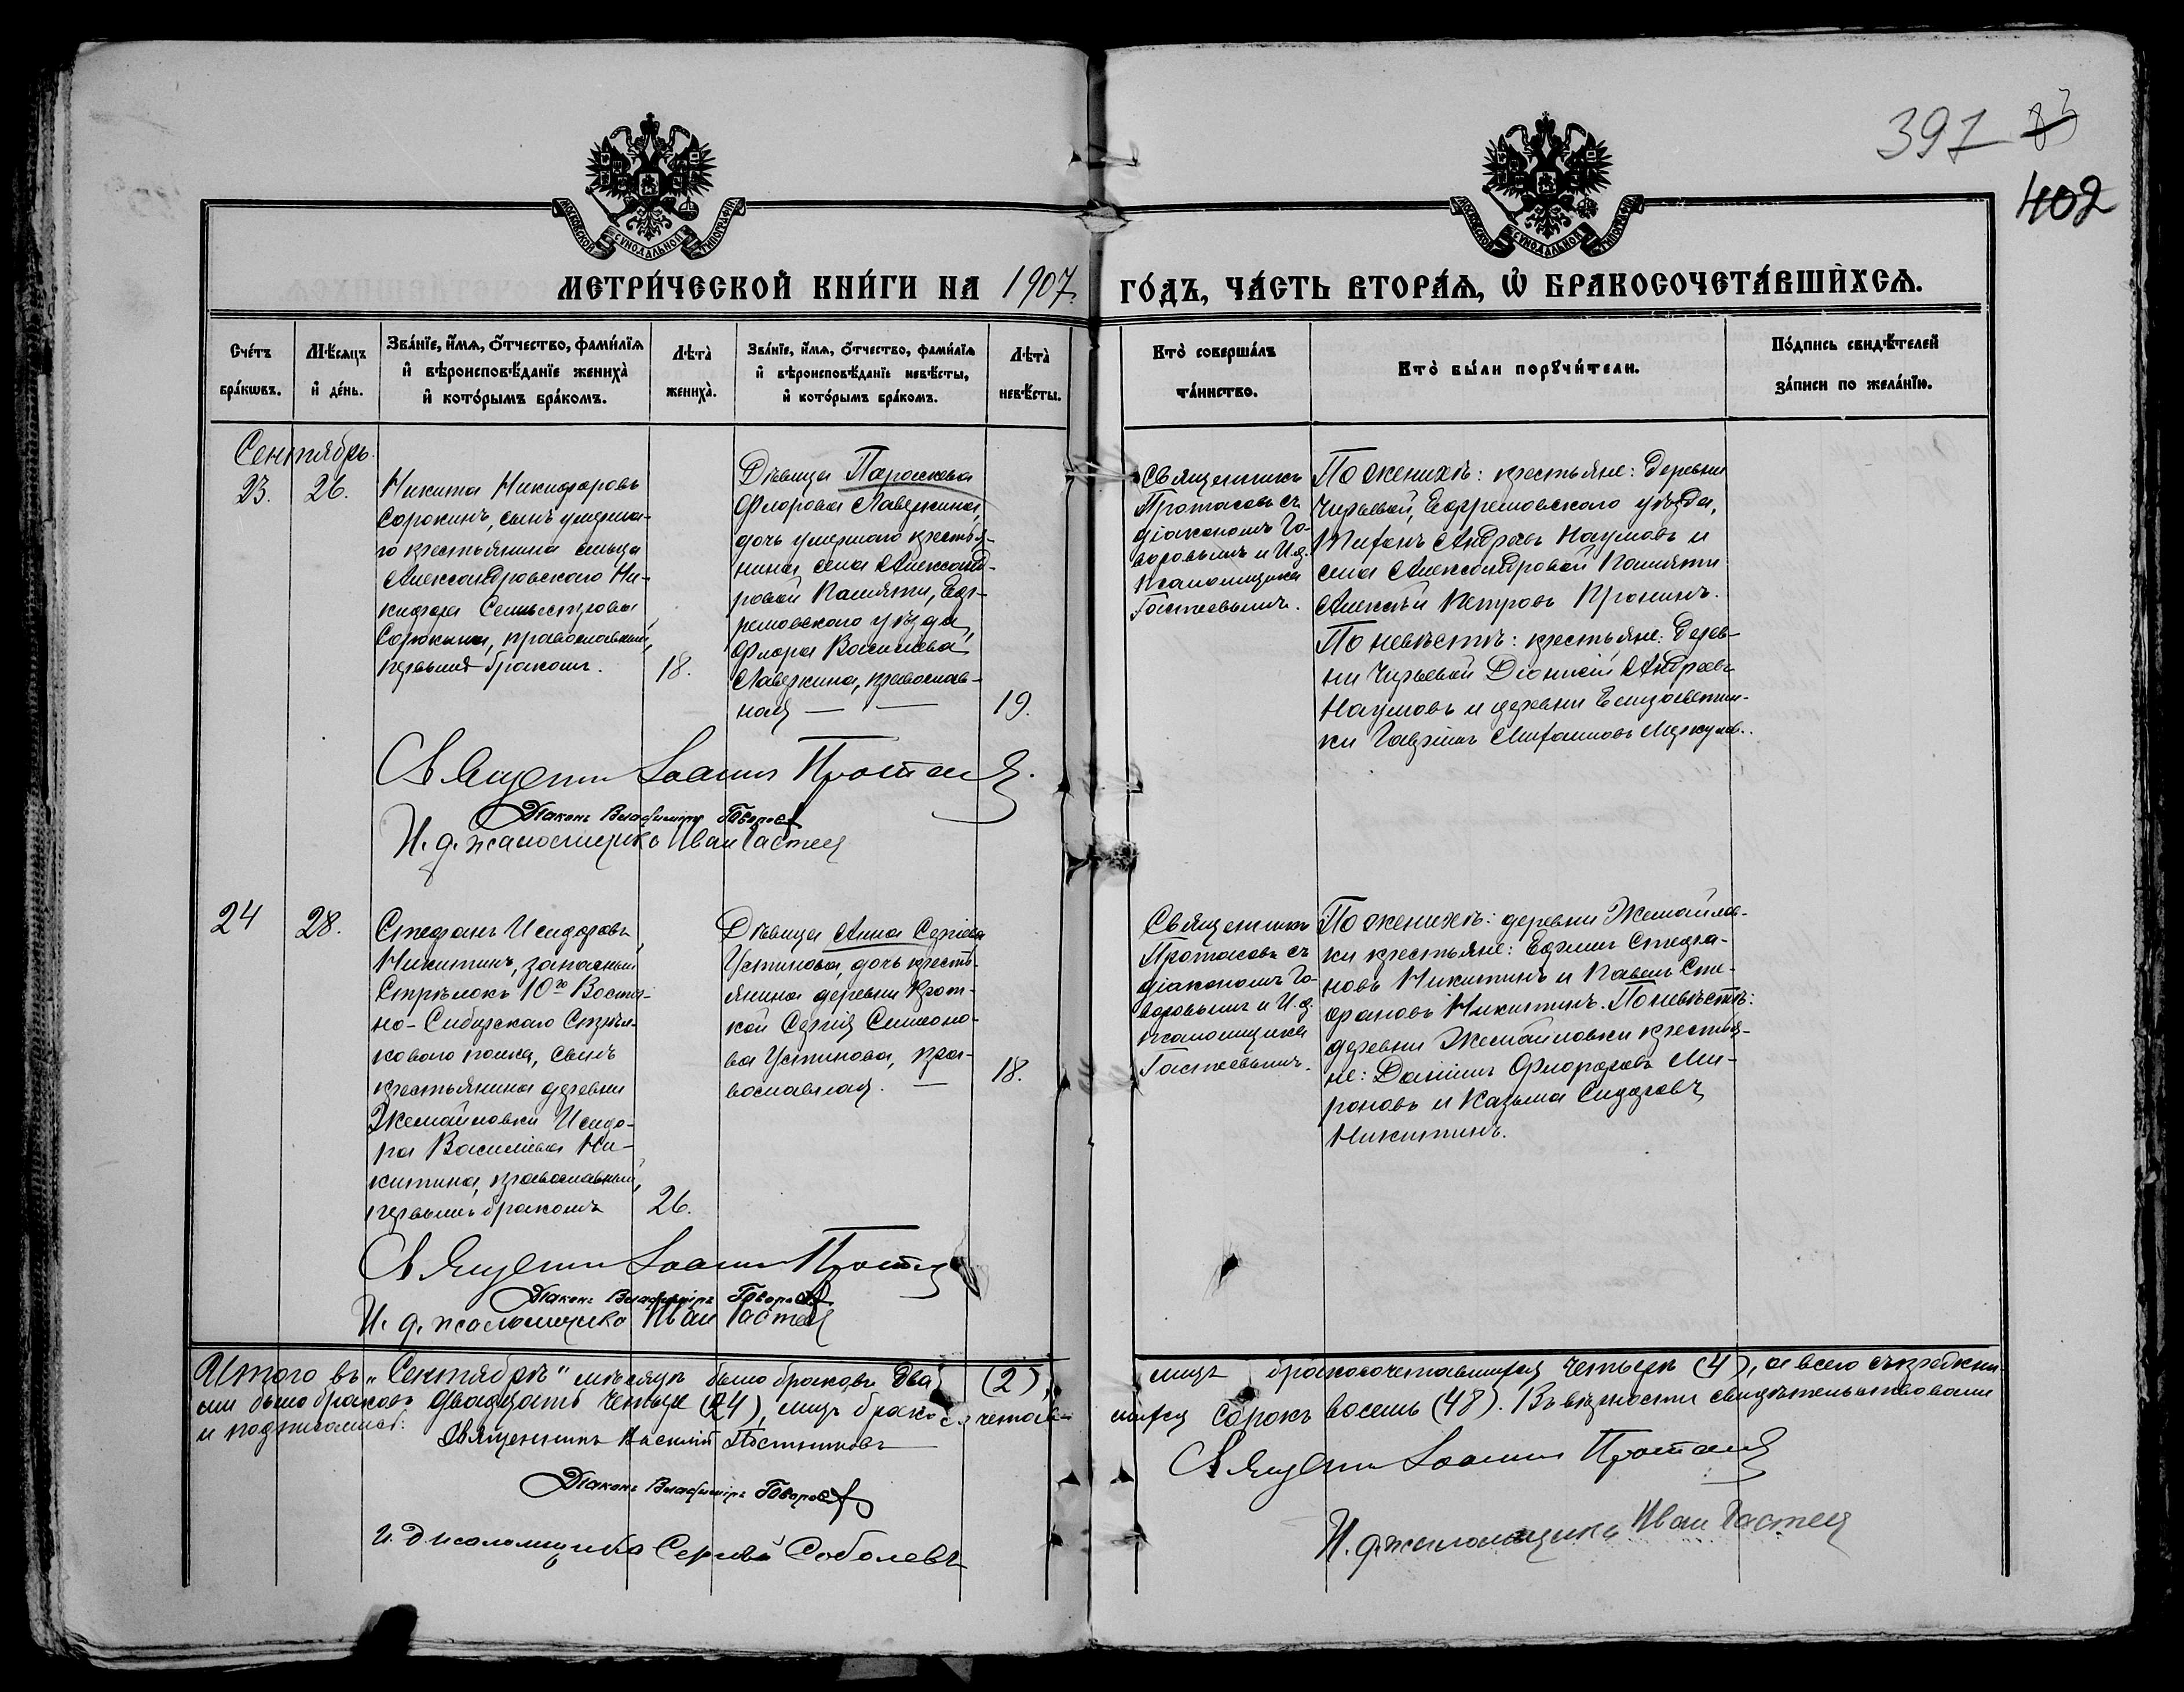 397 83
402
МОСКОВСКОЙ СУНОДАЛЬНОЙ ТИПОГРАФІИ
МОСКОВСКОЙ СУНОДАЛЬНОЙ ТИПОГРАФІИ
МЕТРИ́ЧЕСКОЙ КНИ́ГИ НА 1907.
ГО́ДЪ, ЧА́СТЬ ВТОРА́Ѧ, Ѡ҆ БРАКОСОЧЕТА́ВШИХСѦ.
Сче́тъ
бра́кѡвъ.
Мѣ́сѧцъ
и҆ де́нь.
Зва́нїе, и҆́мѧ, ѻ҆́тчество, фами́лїѧ
и҆ вѣроисповѣ́данїе жениха̀
и҆ кото́рымъ бра́комъ.
Лѣта̀
жениха̀.
Зва́нїе, и҆́мѧ, ѻ҆́тчество, фами́лїѧ
и҆ вѣроисповѣ́данїе невѣ́сты,
и҆ кото́рымъ бра́комъ.
Лѣта̀
невѣ́сты.
Кто̀ соверша́лъ
та́инство.
Кто̀ бы́ли порꙋчи́тели.
По́дпись свидѣ́телей
за́писи по жела́нїю.
Сентябрь.
23.
26.
Никита Никифоровъ
Сорокинъ, сынъ умерша-
го крестьянина сельца
Александровскаго Ни-
кифора Сельвестрова
Сорокина, православный,
первымъ бракомъ.
18.
Дѣвица Параскева
Флорова Лаверкина,
дочь умершаго крестья-
нина села Александ-
ровой Памяти, Еф-
ремовскаго уѣзда,
Флора Васильева
Лаверкина, православ-
ная — —
19.
Священникъ
Протасовъ съ
діакономъ Го-
воровымъ и И.д.
псаломщика
Гастевымъ.
По женихѣ: крестьяне: деревни
Чирьевой, Ефремовскаго уѣзда,
Тихонъ Андреевъ Наумовъ и
села Александровой Памяти
Алексѣй Петровъ Пронинъ.
По невѣстѣ: крестьяне: дерев-
ни Чирьевой Діонисій Андреевъ
Наумовъ и деревни Елизаветин-
ки Гавріилъ
Священникъ Іоаннъ Протасовъ.
Діаконъ Владиміръ Говоровъ
И. д. псаломщика Иванъ Гастевъ
24
28.
Стефанъ Исидоровъ
Никитинъ, запасный
Стрѣлокъ 10го Восточ-
но-Сибирскаго Стрѣл-
коваго полка, сынъ
крестьянина деревни
Жемайловки Исидо-
ра Васильева Ни-
китина, православный,
первымъ бракомъ
26.
Дѣвица Анна Сергіева
Устинова, дочь кресть-
янина деревни Крот-
кой Сергія Симеоно-
ва Устинова, пра-
вославная. —
18.
Священникъ
Протасовъ съ
діакономъ Го-
воровымъ и И.д.
псаломщика
Гастевымъ.
По женихѣ: деревни Жемайлов-
ки крестьяне: Ефимъ Стефа-
новъ Никитинъ и Павелъ Сте-
фановъ Никитинъ. По невѣстѣ:
деревни Жемайловки крестья-
не: Даніилъ Флоровъ Ми-
роновъ и Казьма Сидоровъ
Никитинъ.
Священникъ Іоаннъ Протасовъ
Діаконъ Владиміръ Говоровъ
И. д. псаломщика Иванъ Гастевъ
Итого въ „Сентябрѣ" мѣсяцѣ было браковъ два (2), лицъ бракосочетавшихся четыре (4), а всего съ прежни-
ми было браковъ двадцать четыре (24), лицъ бракосочетав-шихся сорокъ восемь (48). Въ вѣрности свидѣтельствовали
и подписались:
Священникъ Василій Постниковъ
Священникъ Іоаннъ Протасовъ
Діаконъ Владиміръ Говоровъ
И. д. псаломщика Иванъ Гастевъ
И. д псаломщика Сергѣй Соболевъ